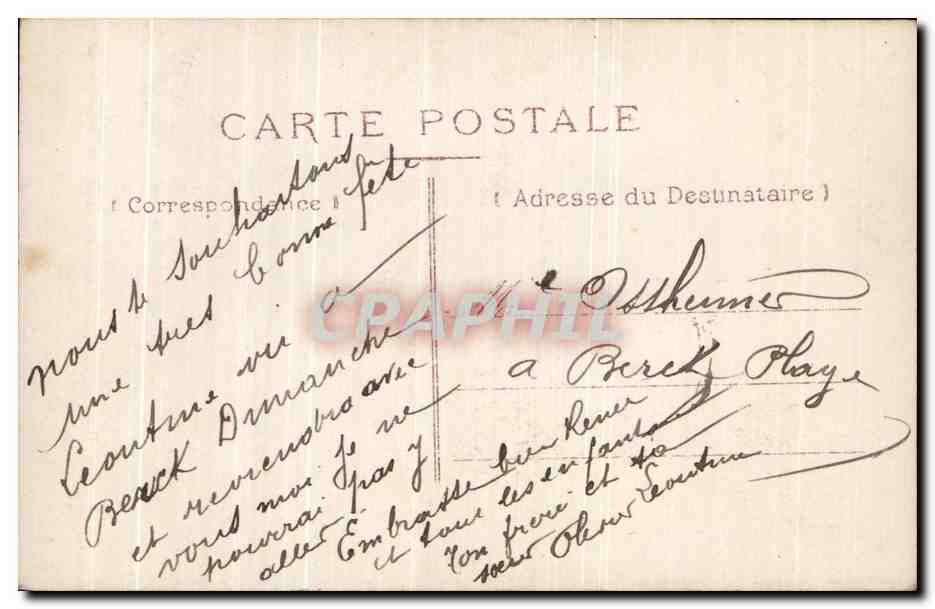 CARTE POSTALE
( Correspondance )
( Adresse du Destinataire )
nous te souhaitons
une tres bonne fête
Leontine va a
Berck Dimanche
et reviendra avec
vous moi je ne
pourrai pas y
aller.
Embrasse bien Renée
et tous les enfants
ton frère et ta
soeur Leontine
Mle Ossheimer
a Berck Plage
CPAPHIL